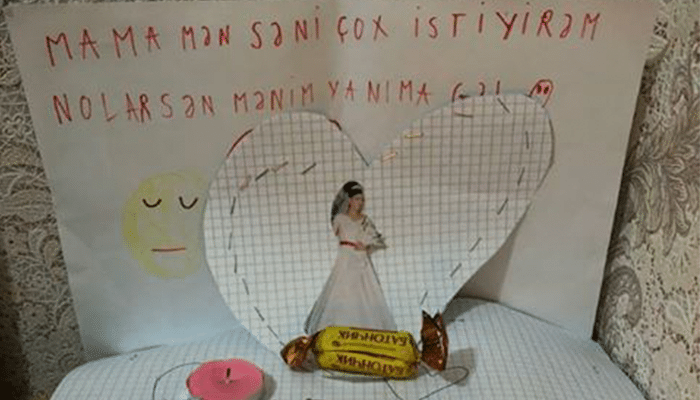 MAMA MƏN SƏNİ ÇOX İSTİYİRƏM
NOLARSƏN MƏNİM YANIMA GəL
БАТОНЧИК